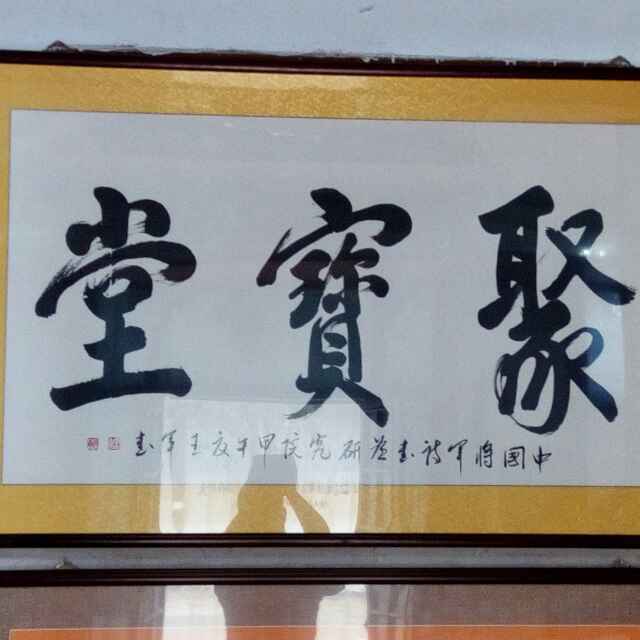 聚寶堂
中國將軍詩書畫研究院甲午夏王軍書